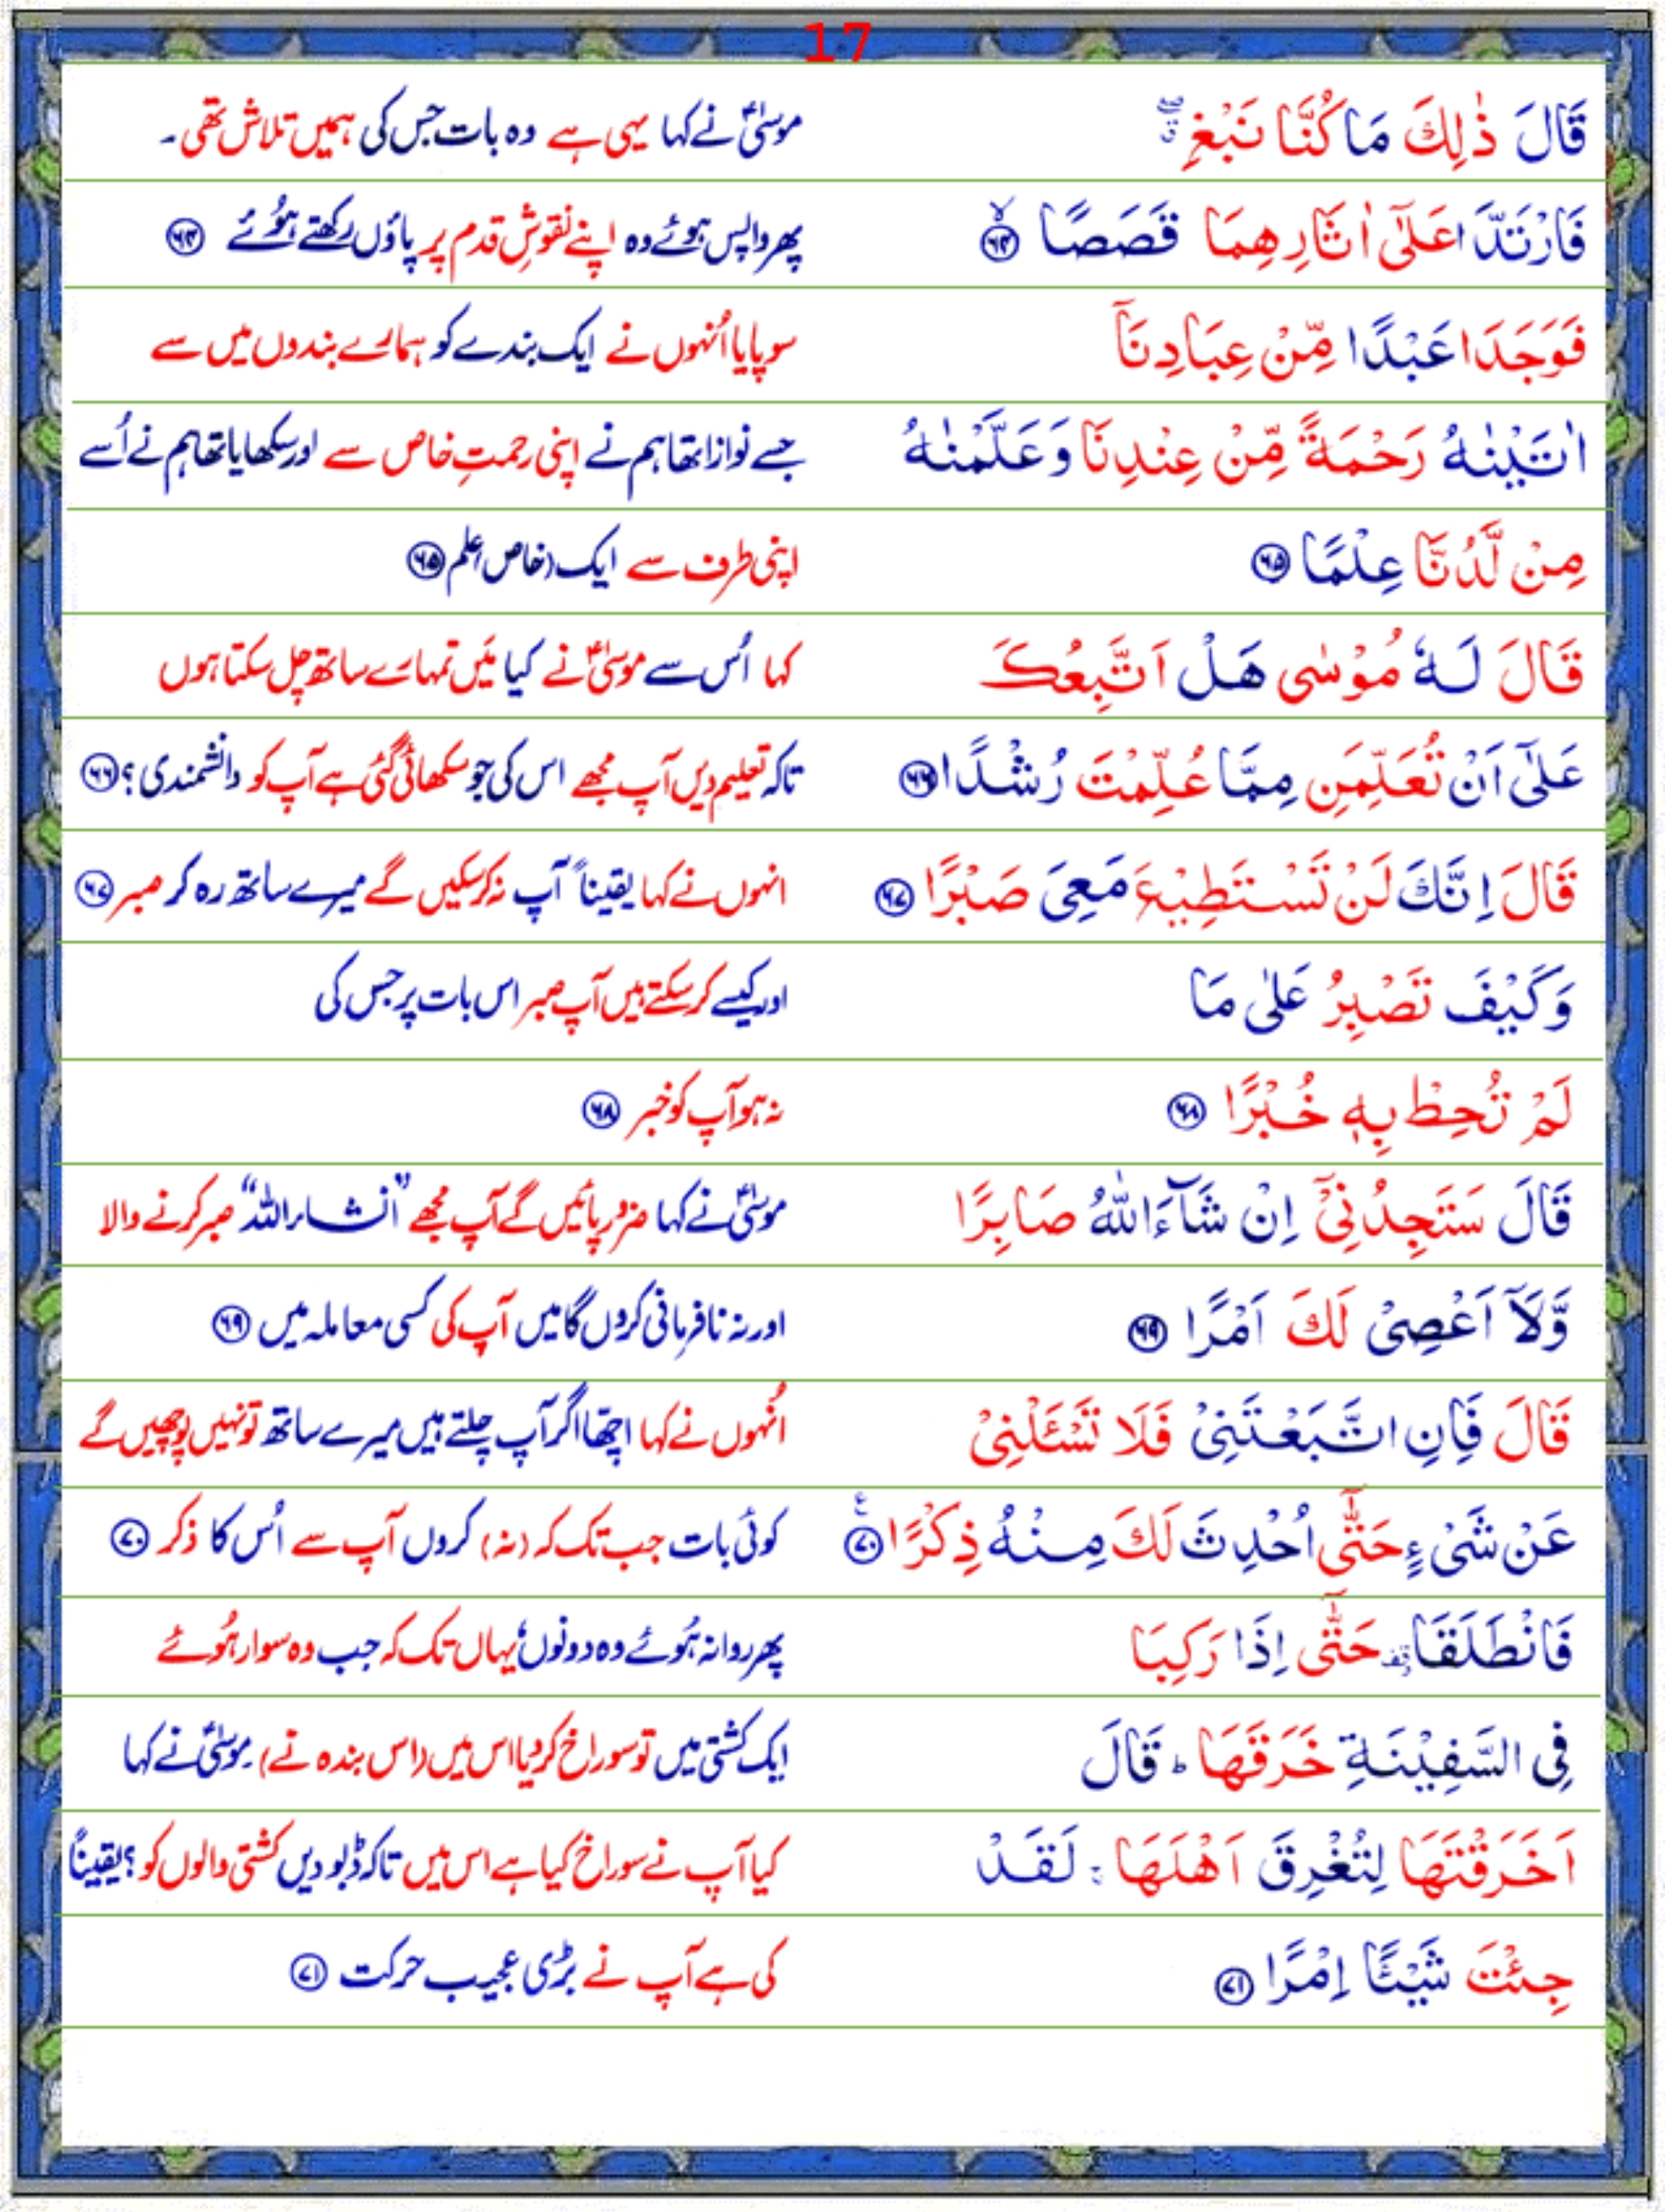 17
قَالَ ذٰلِكَ مَا كُنَّا نَبْغِ ۖۗ موسیٰؑ نے کہا یہی ہے وہ بات جس کی ہمیں تلاش تھی۔
فَارْتَدَّا عَلٰٓى اٰثَارِهِمَا قَصَصًا ۙ﴿۶۴﴾ پھر واپس ہوئے وہ اپنے نقوشِ قدم پر پاؤں رکھتے ہُوئے ﴿۶۴﴾
فَوَجَدَا عَبْدًا مِّنْ عِبَادِنَآ سو پایا اُنہوں نے ایک بندے کو ہمارے بندوں میں سے
اٰتَيْنٰهُ رَحْمَةً مِّنْ عِنْدِنَا وَعَلَّمْنٰهُ جسے نوازا تھا ہم نے اپنی رحمتِ خاص سے اور سکھایا تھا ہم نے اُسے
مِنْ لَّدُنَّا عِلْمًا ﴿۶۵﴾ اپنی طرف سے ایک (خاص) علم ﴿۶۵﴾
قَالَ لَهٗ مُوْسٰى هَلْ اَتَّبِعُكَ کہا اُس سے موسیٰؑ نے کیا مَیں تمہارے ساتھ چل سکتا ہوں
عَلٰٓى اَنْ تُعَلِّمَنِ مِمَّا عُلِّمْتَ رُشْدًا ﴿۶۶﴾ تاکہ تعلیم دیں آپ مجھے اس کی جو سکھائی گئی ہے آپ کو دانشمندی؟ ﴿۶۶﴾
قَالَ اِنَّكَ لَنْ تَسْتَطِيْعَ مَعِىَ صَبْرًا ﴿۶۷﴾ انہوں نے کہا یقیناً آپ نہ کرسکیں گے میرے ساتھ رہ کر صبر ﴿۶۷﴾
وَكَيْفَ تَصْبِرُ عَلٰى مَا اور کیسے کرسکتے ہیں آپ صبر اس بات پر جس کی
لَمْ تُحِطْ بِهٖ خُبْرًا ﴿۶۸﴾ نہ ہو آپ کو خبر ﴿۶۸﴾
قَالَ سَتَجِدُنِىْٓ اِنْ شَآءَ اللّٰهُ صَابِرًا موسیٰؑ نے کہا ضرور پائیں گے آپ مجھے ”انشاء اللہ“ صبر کرنے والا
وَّلَآ اَعْصِىْ لَكَ اَمْرًا ﴿۶۹﴾ اور نہ نافرمانی کروں گا میں آپ کی کسی معاملہ میں ﴿۶۹﴾
قَالَ فَاِنِ اتَّبَعْتَنِىْ فَلَا تَسْـَٔلْنِىْ اُنہوں نے کہا اچھا اگر آپ چلتے ہیں میرے ساتھ تو نہیں پوچھیں گے
عَنْ شَىْءٍ حَتّٰٓى اُحْدِثَ لَكَ مِنْهُ ذِكْرًا ﴿۷۰﴾ ع کوئی بات جب تک کہ (نہ) کروں آپ سے اُس کا ذکر ﴿۷۰﴾
فَانْطَلَقَا ۥ حَتّٰٓى اِذَا رَكِبَا پھر روانہ ہُوئے وہ دونوں، یہاں تک کہ جب وہ سوار ہُوئے
فِى السَّفِيْنَةِ خَرَقَهَا ؕ قَالَ ایک کشتی میں تو سوراخ کردیا اس میں (اس بندہ نے)۔ موسیٰؑ نے کہا
اَخَرَقْتَهَا لِتُغْرِقَ اَهْلَهَا ۚ لَقَدْ کیا آپ نے سوراخ کیا ہے اس میں تاکہ ڈبو دیں کشتی والوں کو؟ یقیناً
جِئْتَ شَيْـًٔا اِمْرًا ﴿۷۱﴾ کی ہے آپ نے بڑی عجیب حرکت ﴿۷۱﴾